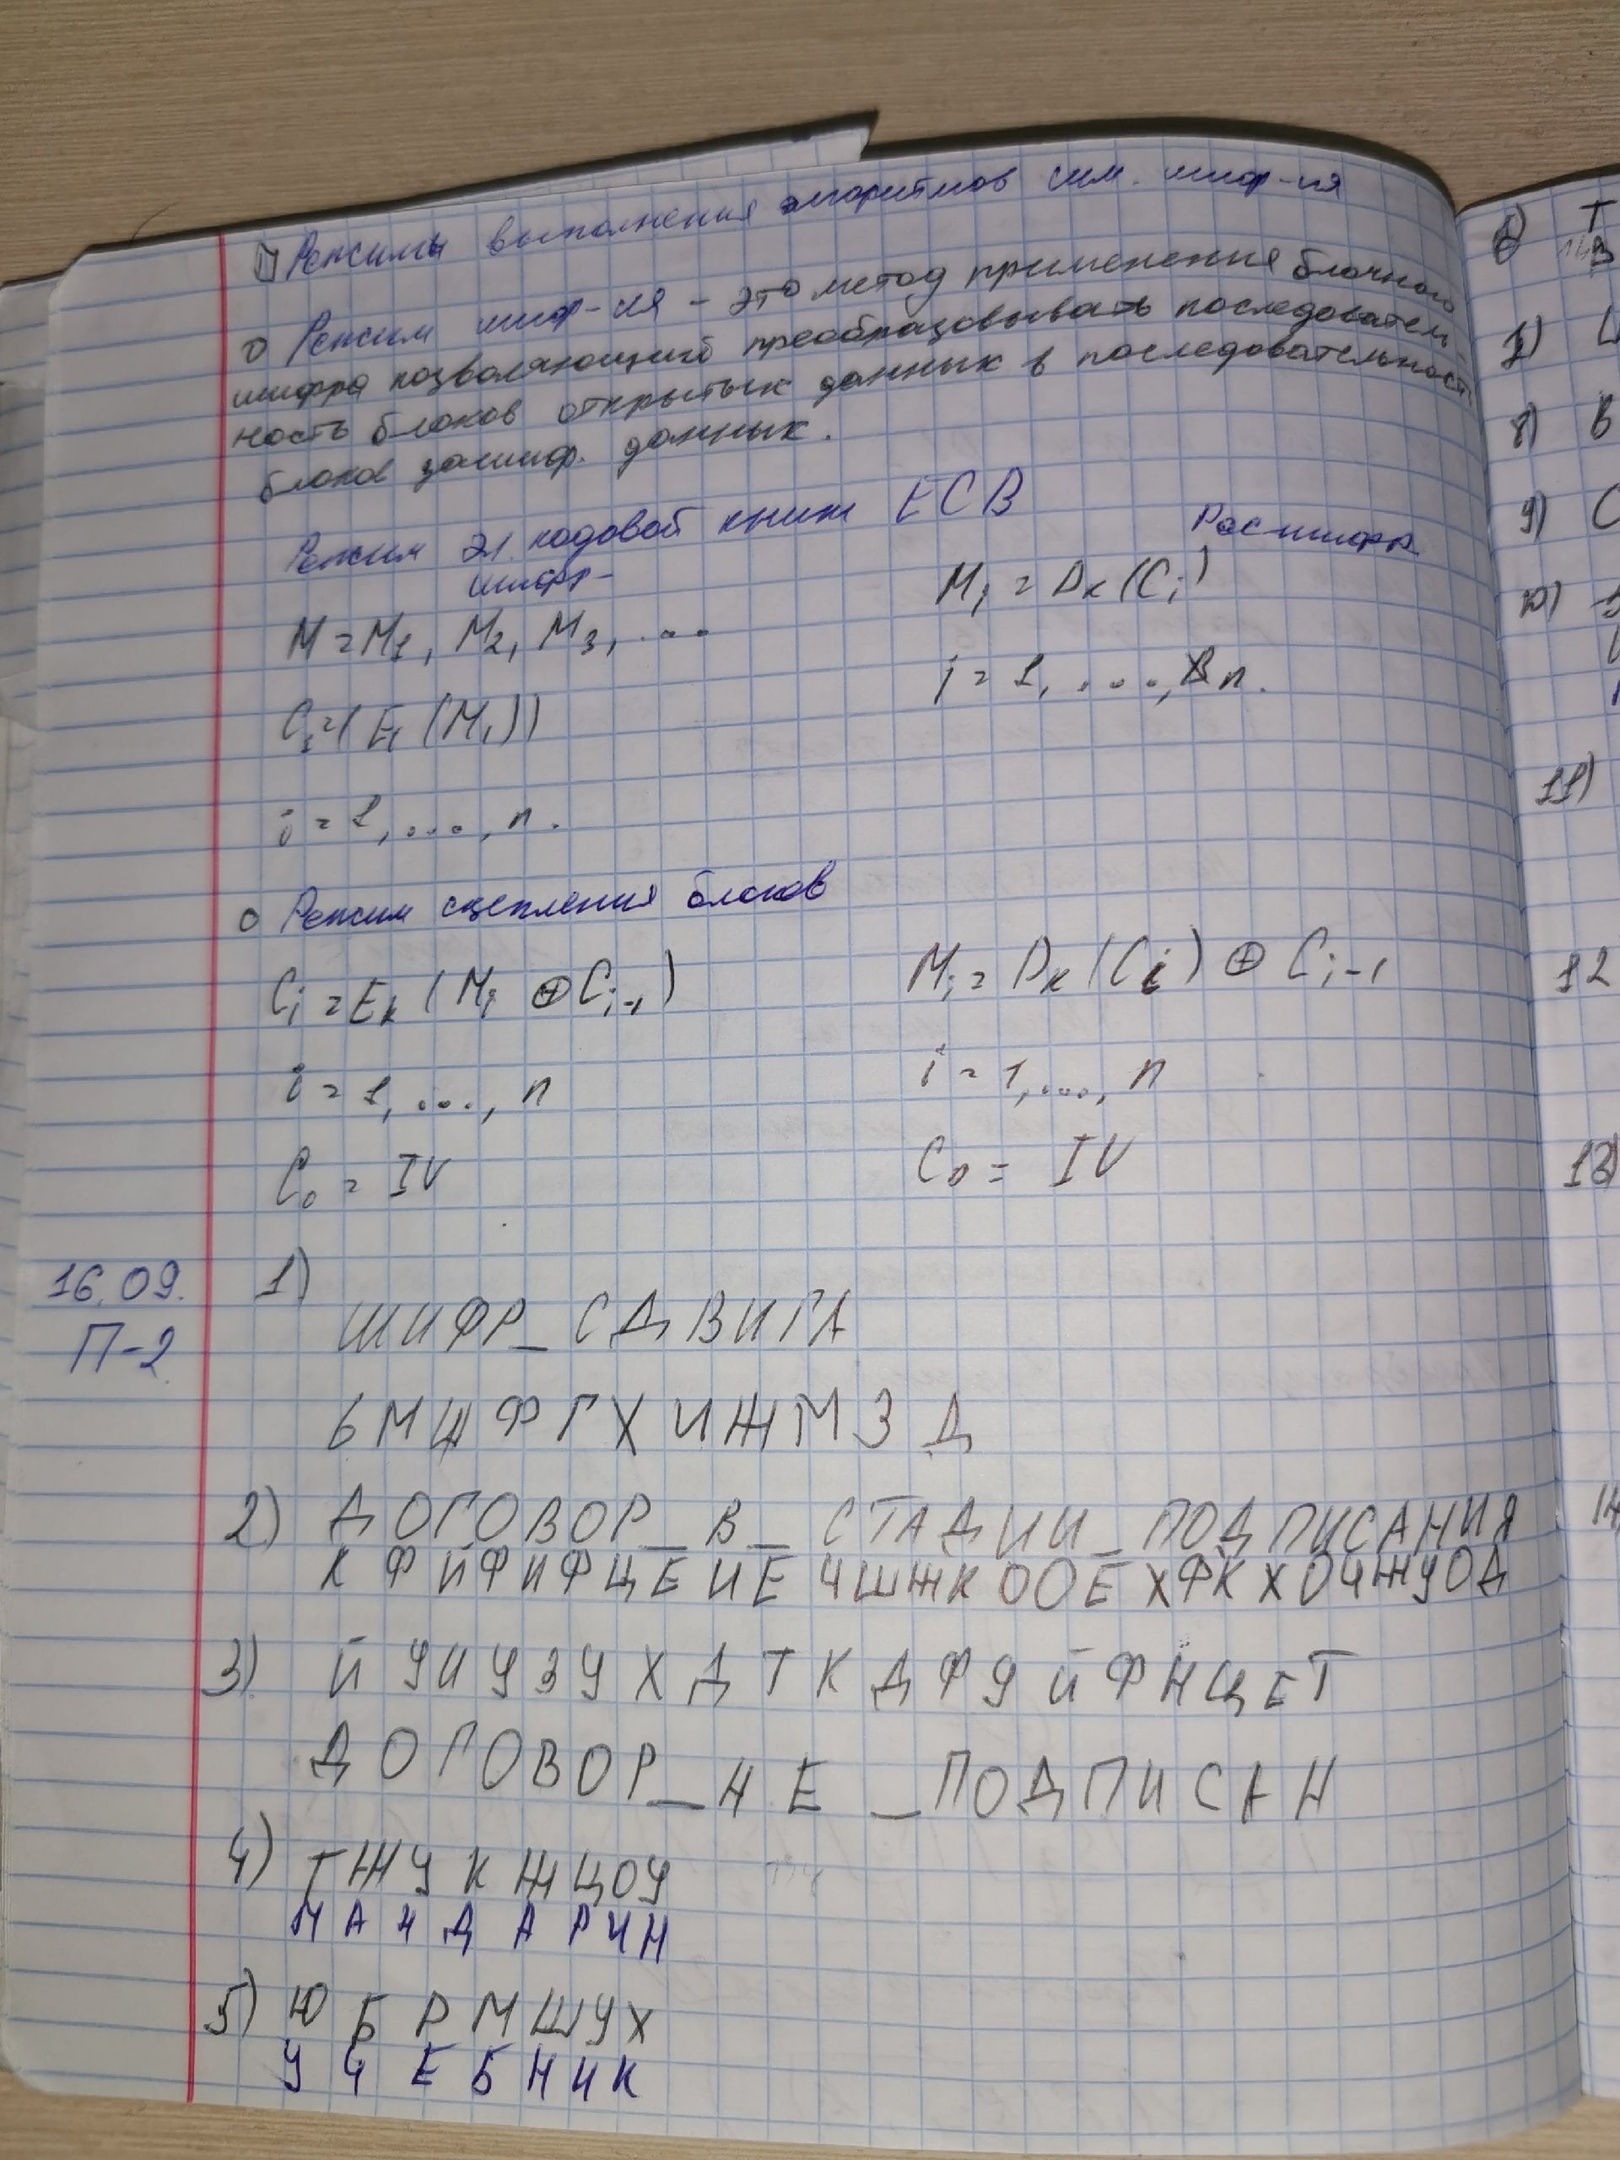 Режимы выполнения алгоритмов сим. шифр-ия
Режим шифр-ия - это метод применения блочного
шифра позволяющий преобразовывать последователь-
ность блоков открытых данных в последовательность
блоков зашиф. данных.
Режим эл. кодовой книги ECB
шифр-
Расшифр
M = M1, M2, M3, ...
Mi = Dk(Ci)
i = 1, ..., n.
i = 1, ..., n.
Режим сцепления блоков
Ci = Ek(Mi ⊕ Ci-1)
Mi = Dk(Ci) ⊕ Ci-1
i = 1, ..., n
i = 1, ..., n
C0 = IV
C0 = IV
16.09.
П-2
1)
ШИФР_СДВИГА
ЬМШФГХИЖМЗД
2) ДОГОВОР_В_СТАДИИ_ПОДПИСАНИЯ
КФЙФИФЦЕИЕЧШЖКООЕХФКХОЧЖУОД
3) ЙУИУЗУХДТКДФУЙФНЦЕТ
ДОГОВОР_НЕ_ПОДПИСАН
4) ТЖУКЖЦОУ
МАНДАРИН
5) ЮБРМШУХ
УЧЕБНИК
6) Т
7)
8) В
9) С
10)
11)
12
13)
14